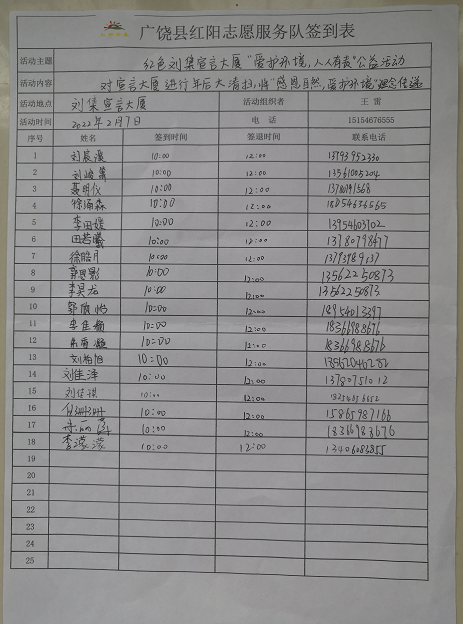 广饶县红阳志愿服务队签到表
活动主题 红色刘集宣言大厦“爱护环境,人人有责”公益活动
活动内容 对宣言大厦进行年后大清扫,将“感恩自然,爱护环境”理念传递
活动地点 刘集宣言大厦 活动组织者 王雷
活动时间 2022年2月7日 电话 15154676555
序号 姓名 签到时间 签退时间 联系电话
1 刘宸 10:00 12:00 13793952330
2 刘峻 10:00 12:00 13561005204
3 聂明仪 10:00 12:00
4 徐涵森 10:00 12:00 18054656565
5 李田媛 10:00 12:00 13954603702
6 田若曦 10:00 12:00 13780798477
7 徐皓月 10:00 12:00 13793989137
8 10:00 12:00 13562250873
9 李昊龙 10:00 12:00 13562250873
10 郭欣怡 10:00 12:00 18954013397
11 李佳 10:00 12:00 18366988676
12 10:00 12:00 18366988676
13 刘柏旭 10:00 12:00 13562046282
14 刘佳泽 10:00 12:00 13780751012
15 刘佳琪 10:00 12:00
16 10:00 12:00 15865987166
17 10:00 12:00 18366983676
18 李濛濛 10:00 12:00 13406083855
19
20
21
22
23
24
25